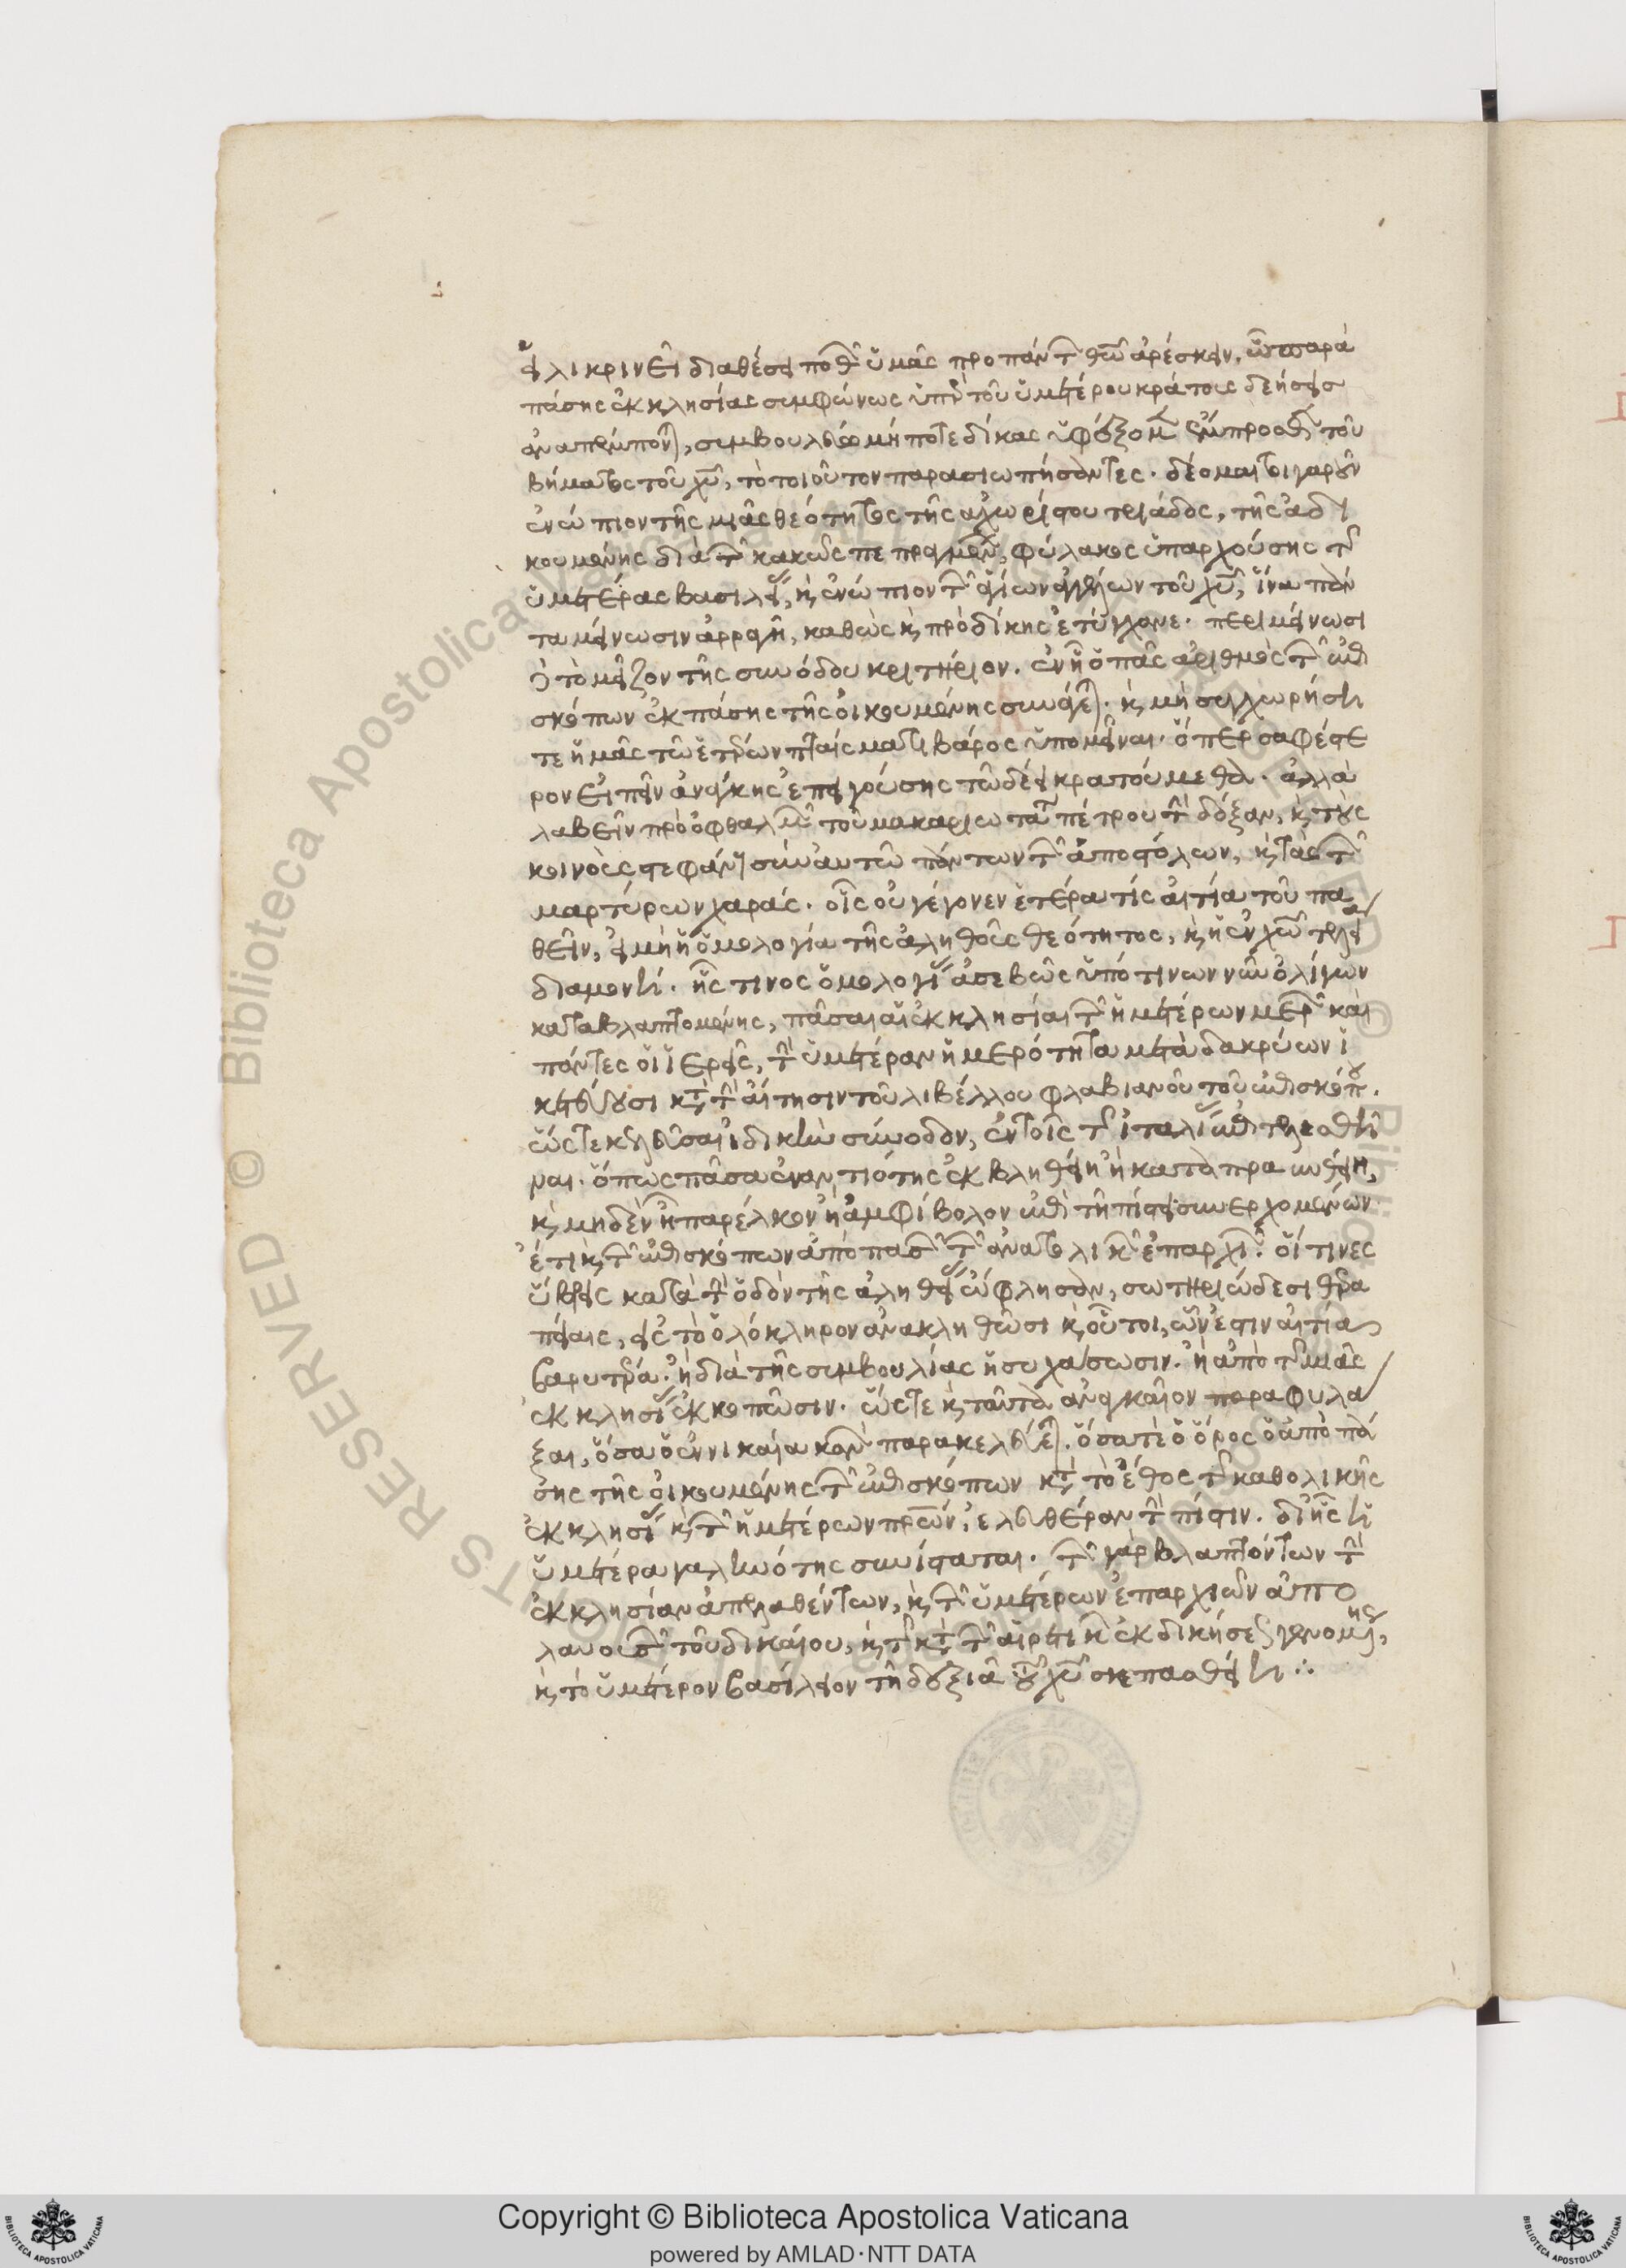 εἰλικρινεῖ διαθέσει ποθῶν ὑμᾶς πρὸ πάντων θεῷ ἀρέσκειν, ᾧ παρὰ
πάσης ἐκκλησίας συμφώνως ὑπὲρ τοῦ ὑμετέρου κράτους δεήσεις
ἀναπέμπονται, συμβουλεύω μήποτε δίκας ὑφέξομεν ἔμπροσθεν τοῦ
βήματος τοῦ χυ, τὸ τοιοῦτον παρασιωπήσαντες. δέομαι τοιγαροῦν
ἐνώπιον τῆς μιᾶς θεότητος τῆς ἀχωρίστου τριάδος, τῆς ἀδι
κουμένης διὰ τῶν κακῶς πεπραγμένων, φύλακος ὑπαρχούσης τῆς
ὑμετέρας βασιλείας, κ ἐνώπιον τῶν ἁγίων ἀγγέλων τοῦ χυ, ἵνα πάν
τα μείνωσιν ἀρραγῆ, καθὼς κ πρὸ δίκης ἐτύγχανε. περιμείνωσι
τὸ μεῖζον τῆς συνόδου κριτήριον. ἐν ᾗ ὁ πᾶς ἀριθμὸς τῶν ἐπι
σκόπων ἐκ πάσης τῆς οἰκουμένης συνάγεται. κ μὴ συγχωρήση
τε ἡμᾶς τῷ ἑτέρων πταίσματι βάρος ὑπομεῖναι. ὅπερ σαφέστε
ρον εἰπεῖν ἀνάγκης ἐπειγούσης τῷ δέει κρατούμεθα. ἀλλὰ
λαβεῖν πρὸ ὀφθαλμῶν τοῦ μακαριωτάτου πέτρου τὴν δόξαν, κ τοὺς
κοινοὺς στεφάνους σὺν αὐτῷ πάντων τῶν ἀποστόλων, κ τὰς τῶν
μαρτύρων χαράς. οἷς οὐ γέγονεν ἑτέρα τίς αἰτία τοῦ πα
θεῖν, εἰ μὴ ἡ ὁμολογία τῆς ἀληθοῦς θεότητος, κ ἡ ἐν χῷ τελεία
διαμονή. ἧς τινος ὁμολογίας ἀσεβῶς ὑπό τινων νῦν ὀλίγων
καταβλαπτομένης, πᾶσαι αἱ ἐκκλησίαι τῶν ἡμετέρων μερῶν καὶ
πάντες οἱ ἱερεῖς, τὴν ὑμετέραν ἡμερότητα μετὰ δακρύων ἱ
κετεύουσι κατὰ τὴν αἴτησιν τοῦ λιβέλλου φλαβιανοῦ τοῦ ἐπισκόπου.
ὥστε κελεῦσαι ἰδικὴν σύνοδον, ἐν τοῖς τῆς ἰταλίας ἐπιτελεσθῆ
ναι. ὅπως πᾶσα ἐναντιότης ἐκβληθείη ἢ καταπραϋνθείη,
κ μηδὲν ᾖ παρέλκον ἢ ἀμφίβολον ἐπὶ τῇ πίστει συνερχομένων
ἔτι κ τῶν ἐπισκόπων ἀπὸ πασῶν τῶν ἀνατολικῶν ἐπαρχιῶν. οἵ τινες
ὕβρεις κατὰ τὴν ὁδὸν τῆς ἀληθείας ὤφλησαν, σωτηριώδεσι θερα
πείαις, εἰς τὸ ὁλόκληρον ἀνακληθῶσι κ οὗτοι, ὧν ἐστιν αἰτία
βαρυτέρα. ἢ διὰ τῆς συμβουλίας ἡσυχάσωσιν. ἢ ἀπὸ τῆς μιᾶς
ἐκκλησίας ἐκκοπῶσιν. ὥστε κ ταῦτα ἀναγκαῖον παραφυλα
ξαι, ὅσα ὁ ἐν νικαίᾳ κανὼν παρακελεύεται. ὅσα τὲ ὁ ὅρος ὁ ἀπὸ πά
σης τῆς οἰκουμένης τῶν ἐπισκόπων κατὰ τὸ ἔθος τῆς καθολικῆς
ἐκκλησίας κ τῶν ἡμετέρων πρων, ἐλευθέραν τὴν πίστιν. δι ἧς ἡ
ὑμετέρα γαληνότης συνίσταται. τῶν γὰρ βλαπτόντων τὴν
ἐκκλησίαν ἀπελαθέντων, κ τῶν ὑμετέρων ἐπαρχιῶν ἀπο
λαυουσῶν τοῦ δικαίου, κ τῆς κατὰ τῶν αἱρετικῶν ἐκδικήσεως γενομένης,
κ τὸ ὑμέτερον βασίλειον τῇ δεξιᾷ τοῦ χυ σκεπασθείη